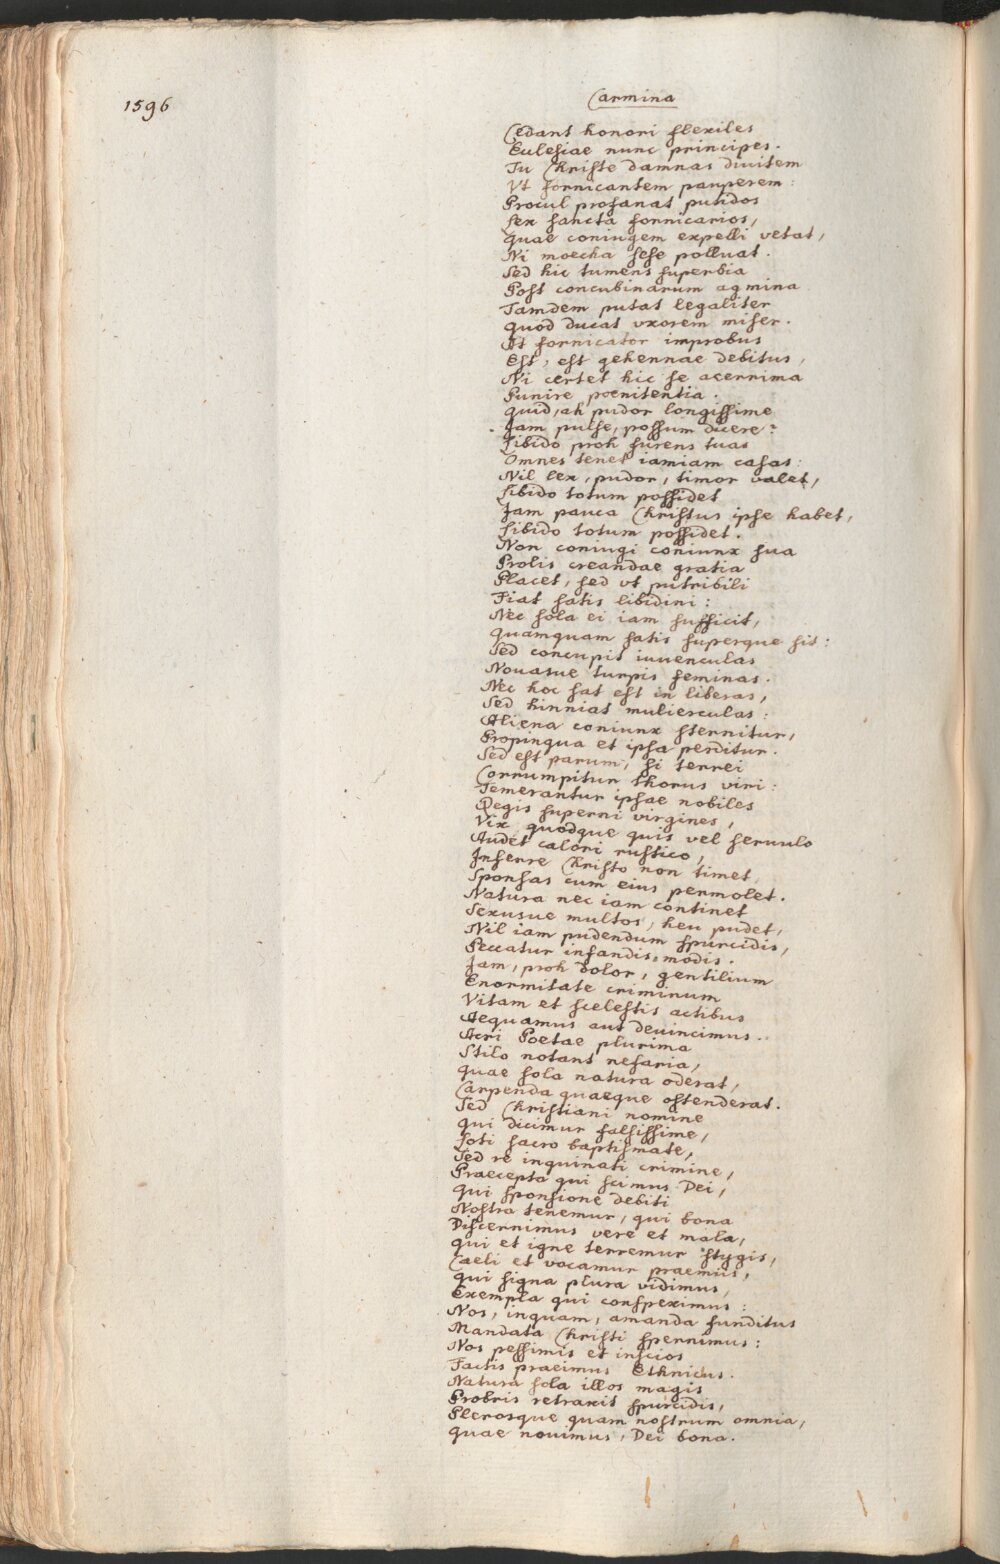 1596
Carmina
Cedant honori flexiles
Eulesiae nunc principes.
Tu Christe damnas divitem
Vt fornicantem pauperem:
Procul profanat putidos
Lex sancta fornicarios,
Quae coniugem expelli vetat,
Ni moecha sese polluat.
Sed hic tumens superbia
Post concubinarum agmina
Tamdem putat legaliter
Quod ducat vxorem miser.
At fornicator improbus
Est, est gehennae debitus,
Ni certet hic se acerrima
Punire poenitentia.
Quid, ah pudor longissime
Jam pulse, possum dicere?
Libido proh furens tuas
Omnes tenet iamiam casas:
Nil lex, pudor, timor valet,
Libido totum possidet
Jam pauca Christus ipse habet,
Libido totum possidet.
Non coniugi coniunx sua
Prolis creandae gratia
Placet, sed vt putribili
Fiat satis libidini:
Nec sola ei iam sufficit,
Quamquam satis superque sit:
Sed concupit iuuenculas
Nouasue turpis feminas.
Nec hoc sat est in liberas,
Sed hinniat mulierculas:
Aliena coniunx sternitur,
Propinqua et ipsa perditur.
Sed est parum, si terrei
Corrumpitur thorus viri:
Temerantur ipsae nobiles
Regis superni virgines,
Vix quodque quis vel seruulo
Audet calori rustico,
Inferre Christo non timet,
Sponsas cum eius permolet.
Natura nec iam continet
Sexusue multos, heu pudet,
Nil iam pudendum spurcidis,
Peccatur infandis modis.
Jam, proh dolor, gentilium
Enormitate criminum
Vitam et scelestis actibus
Aequamus aut deuincimus.
Acri Poetae plurima
Stilo notant nefaria,
Quae sola natura oderat,
Carpenda quaeque ostenderat.
Sed Christiani nomine
Qui dicimur falsissime,
Loti sacro baptismate,
Sed re inquinati crimine,
Praecepta qui scimus Dei,
Qui sponsione debiti
Nostra tenemur, qui bona
Discernimus vere et mala,
Qui et igne terremur stygis,
Caeli et vocamur praemiis,
Qui signa plura vidimus,
Exempla qui conspeximus:
Nos, inquam, amanda funditus
Mandata Christi spernimus:
Nos pessimis et inscios
Factis praeimus Ethnicus.
Natura sola illos magis
Probris retraxit spurcidis,
Plerosque quam nostrum omnia,
Quae nouimus, Dei bona.